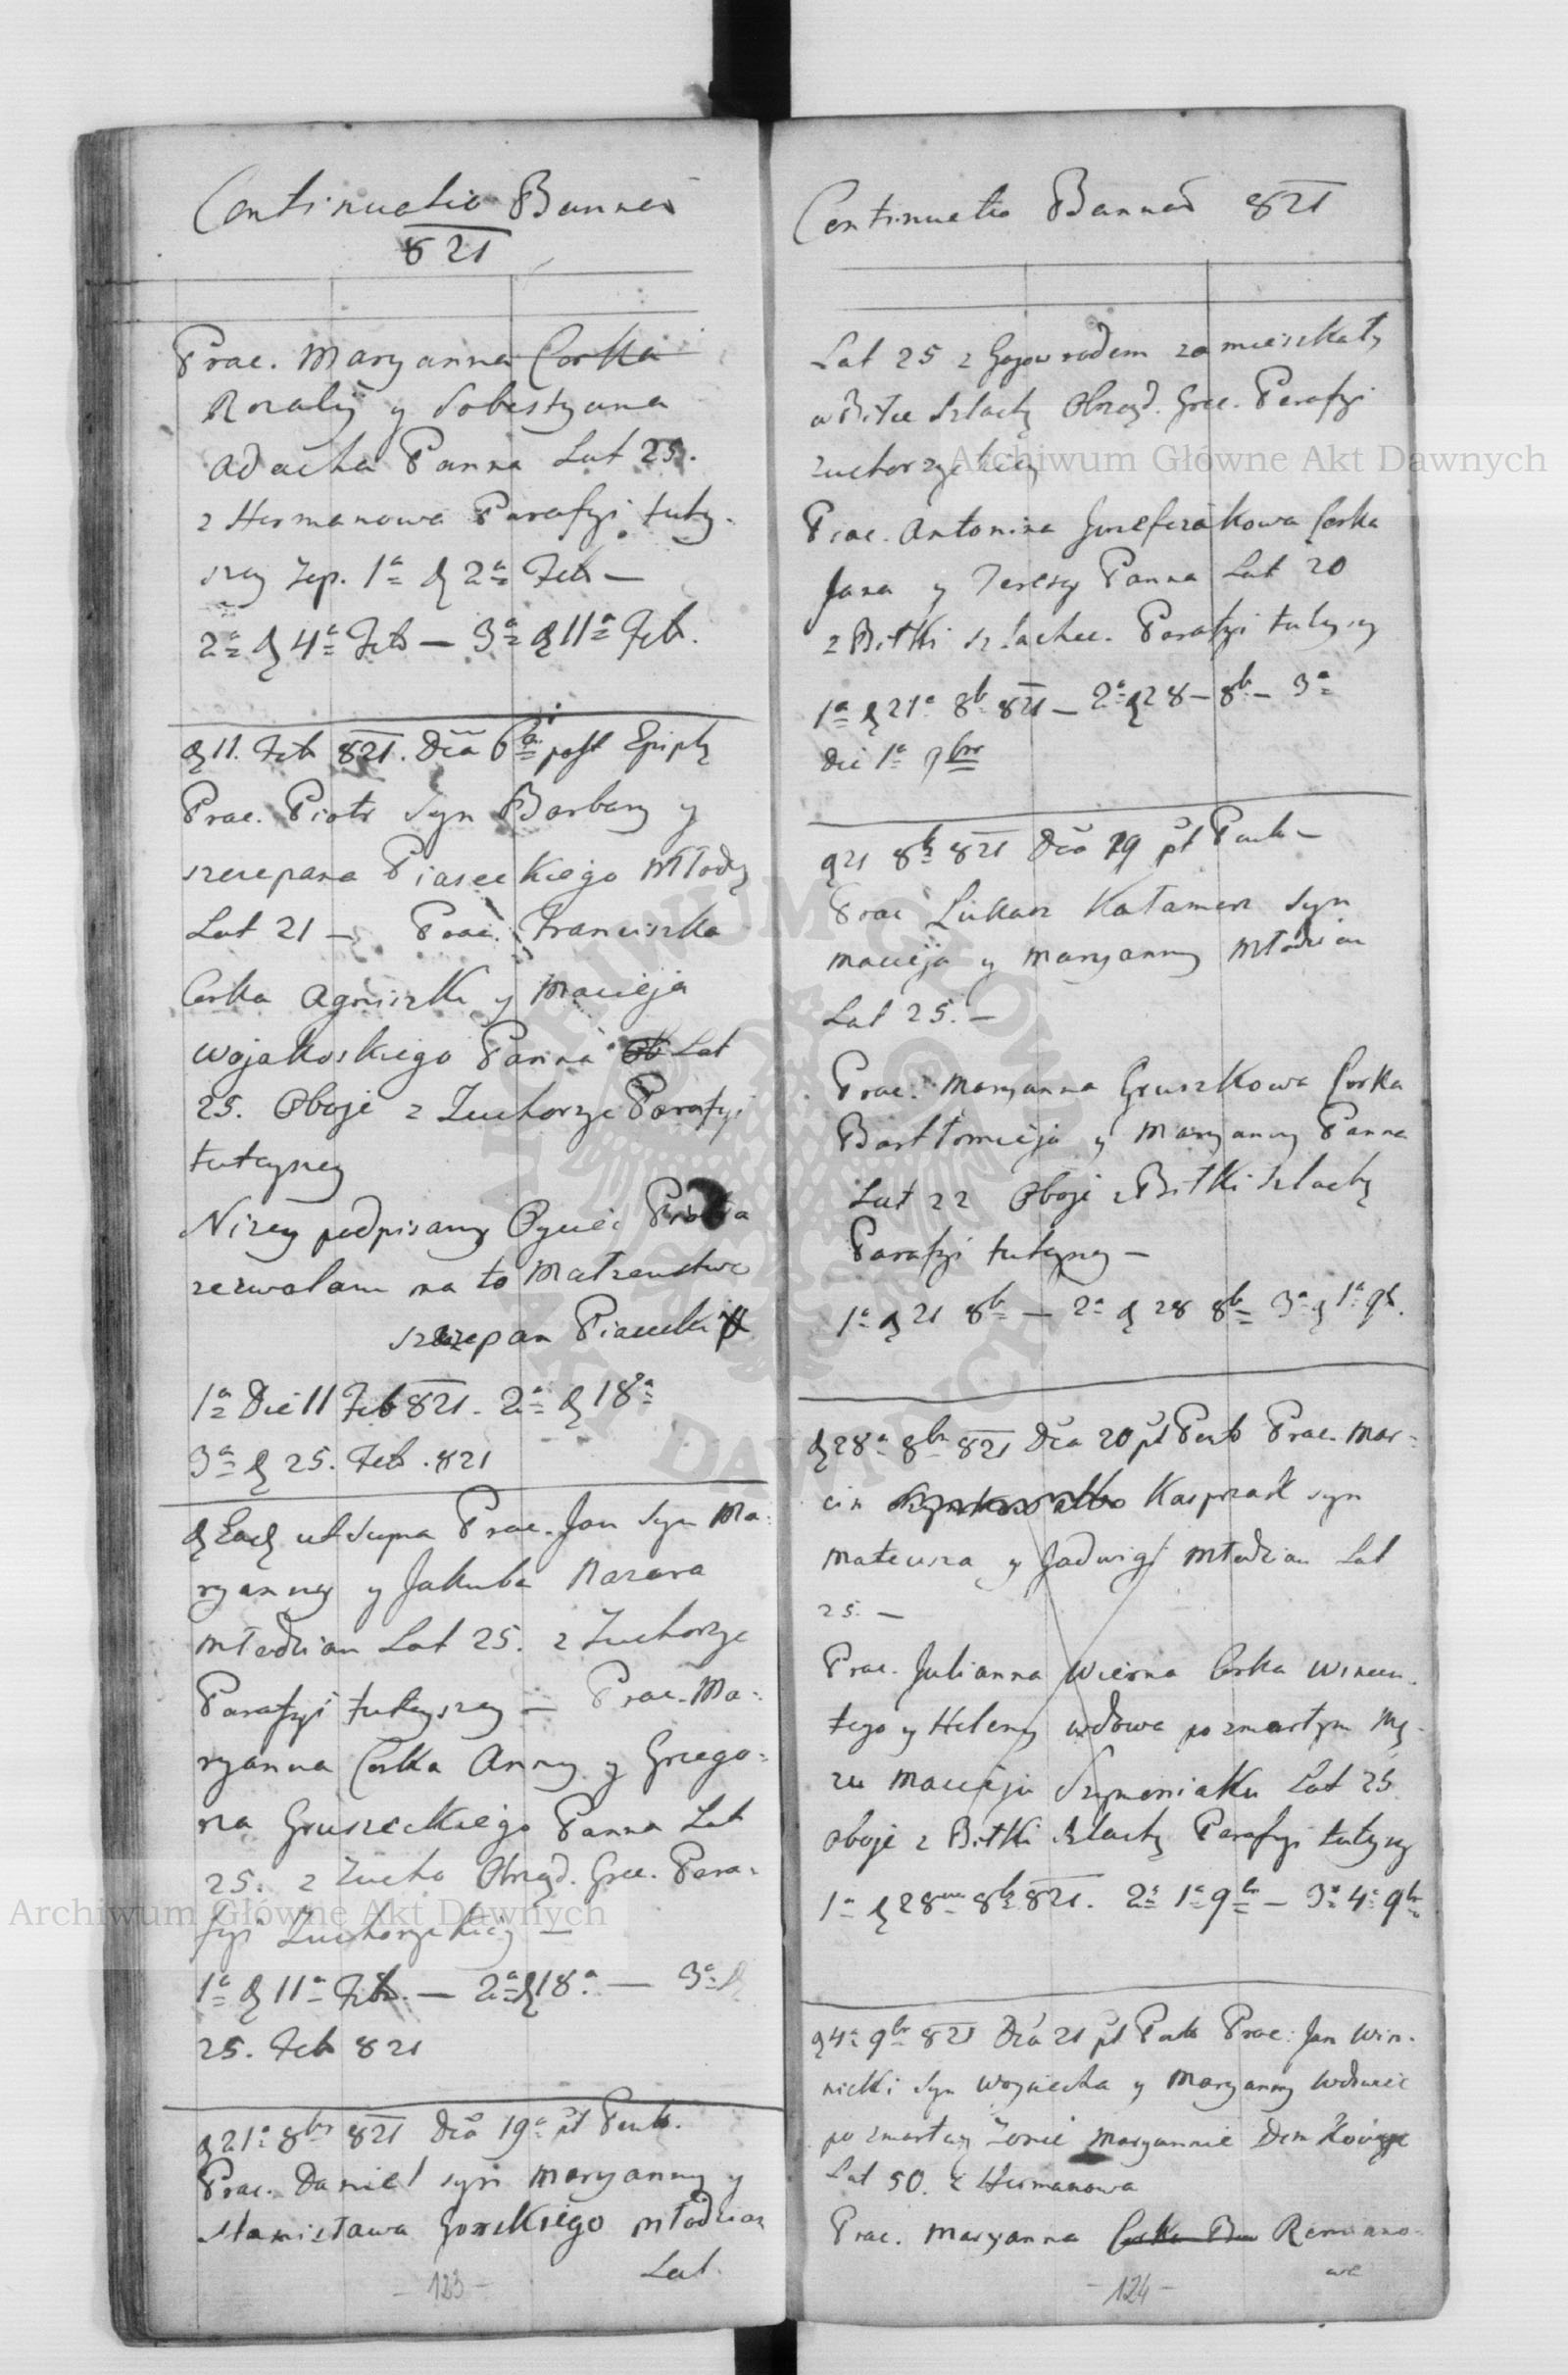 Continuatio Bannor
821
Prac. Maryanna Corka
Rozalij y Sobestyana
Adacha Panna Lat 25.
z Hermanowa Parafyi tuty-
szey Zep. 1a D 2a Feb —
2a D 4a Feb — 3a D 11a Feb.
D 11. Feb 821. Dca 6ta post Epiph
Prac. Piotr Syn Barbary y
szczepana Piaseckiego Młody
Lat 21 — Prac. Franciszka
Corka Agniszki y Macieja
Wojakoskiego Panna Lat
25. Oboje z Zuchorzyc Parafyi
tutejszey
Nizey podpisany Oyciec Piotra
zezwalam na to Małzenstwo
szczepan Piasecki
1a Die 11 Feb 821. 2a D 18a
3a D 25. Feb. 821
D Eod ut Supra Prac. Jan Syn Ma-
ryanny y Jakuba Nazara
młodzian Lat 25. z Zuchorzyc
Parafyi tutejszey — Prac. Ma-
ryanna Corka Anny y Grzego-
rza Gruszeckiego Panna Lat
25. z Zucho Obrząd. Grec. Para-
fyi Zuchorzyckiej —
1a D 11a Feb. — 2a D 18a — 3a D
25. Feb 821
D 21a 8br 821 Dca 19a pt Pent.
Prac. Daniel syn Maryanny y
Stanisława Gorzkiego młodzian
Lat
- 123 -
Continuatio Bannor 821
Lat 25 z rodem zamieszkały
w Bitce Szlachy Obrząd. Grec. Parafyi
zuchorzyckiey
Prac. Antonina Juzefczakowa Corka
Jana y Teresy Panna Lat 20
z Bitki szlachec. Parafyi tutejszey
1a D 21a 8b 821 — 2a D 28 — 8b — 3a
Die 1a 9br
D 21 8b 821 Dca 19 pt Pent —
Prac Lukasz Katamerz Syn
Macieja y Maryanny Młodzian
Lat 25. —
Prac. Maryanna Gruszkowa Corka
Bartłomieja y Maryanny Panna
Lat 22 Oboje z Bitki Szlachy
Parafyi tutejszey —
1a D 21 8b — 2a D 28 8b 3a D 1a 9b.
D 28a 8br 821 Dca 20 pt Pent Prac. Mar-
cin Kasprzak syn
Mateusza y Jadwigi Młodzian Lat
25. —
Prac. Julianna Wierna Corka Wincen-
tego y Heleny wdowa po zmarłym Mę-
zu Macieju Szymoniaku Lat 25
oboje z Bitki Szlachy Parafyi tutejszey
1a D 28va 8b 821. 2a 1a 9b — 3a 4a 9br
D 4a 9br 821 Dca 21 pt Pent Prac: Jan Win-
nicki Syn Woyciecha y Maryanny Wdowiec
po zmarłey Zonie Maryannie Dem
Lat 50. z Hermanowa
Prac. Maryanna Corka Remiano-
wa
- 124 -
Archiwum Główne Akt Dawnych
Archiwum Główne Akt Dawnych
ARCHIWUM GŁÓWNE AKT DAWNYCH